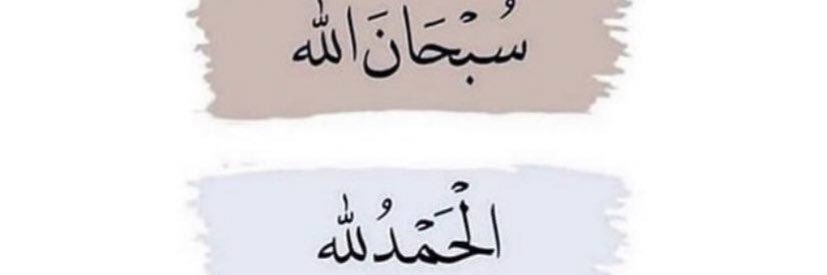 سُبْحَانَ الله
الْحَمْدُ لله